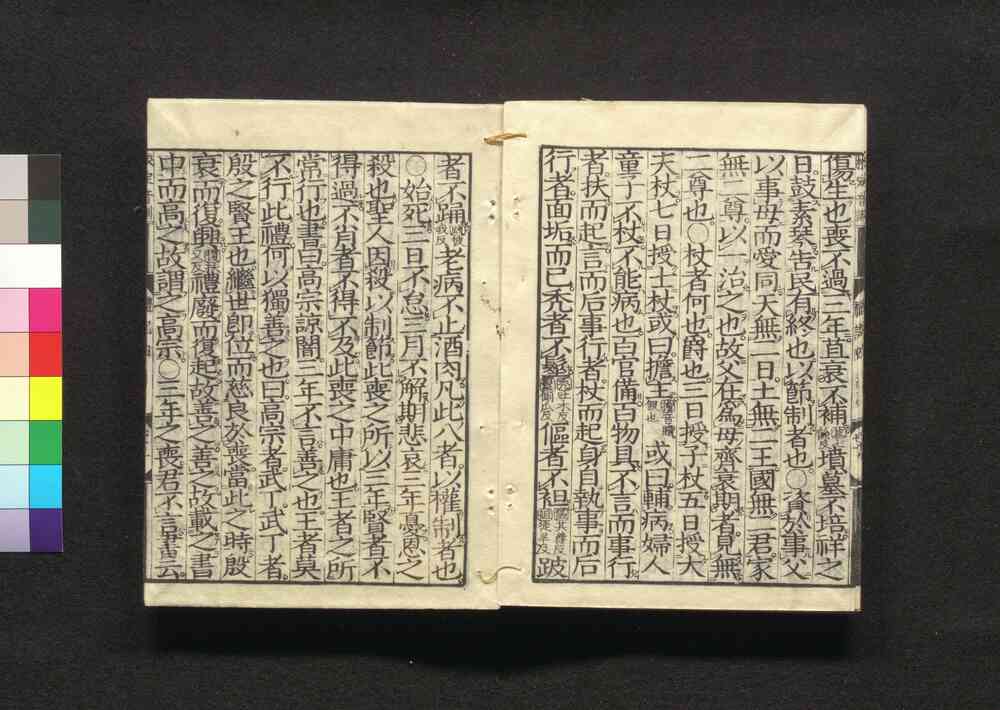 傷生也喪不過三年苴衰不補墳墓不培祥之
日鼓素琴告民有終也以節制者也○資於事父
以事母而愛同天無二日土無二王國無二君家
無二尊以一治之也故父在爲母齊衰期者見無
二尊也○杖者何也爵也三日授子杖五日授大
夫杖七日授士杖或曰擔主或曰輔病婦人
童子不杖不能病也百官備百物具不言而事行
者扶而起言而后事行者杖而起身自執事而后
行者面垢而已禿者不髽傴者不袒跛
者不踊老病不止酒肉凡此八者以權制者也
○始死三日不怠三月不解期悲哀三年憂恩之
殺也聖人因殺以制節此喪之所以三年賢者不
得過不肖者不得不及此喪之中庸也王者之所
常行也書曰高宗諒闇三年不言善之也王者莫
不行此禮何以獨善之也曰高宗者武丁武丁者
殷之賢王也繼世即位而慈良於喪當此之時殷
衰而復興禮廢而復起故善之善之故載之書
中而高之故謂之高宗○三年之喪君不言書云